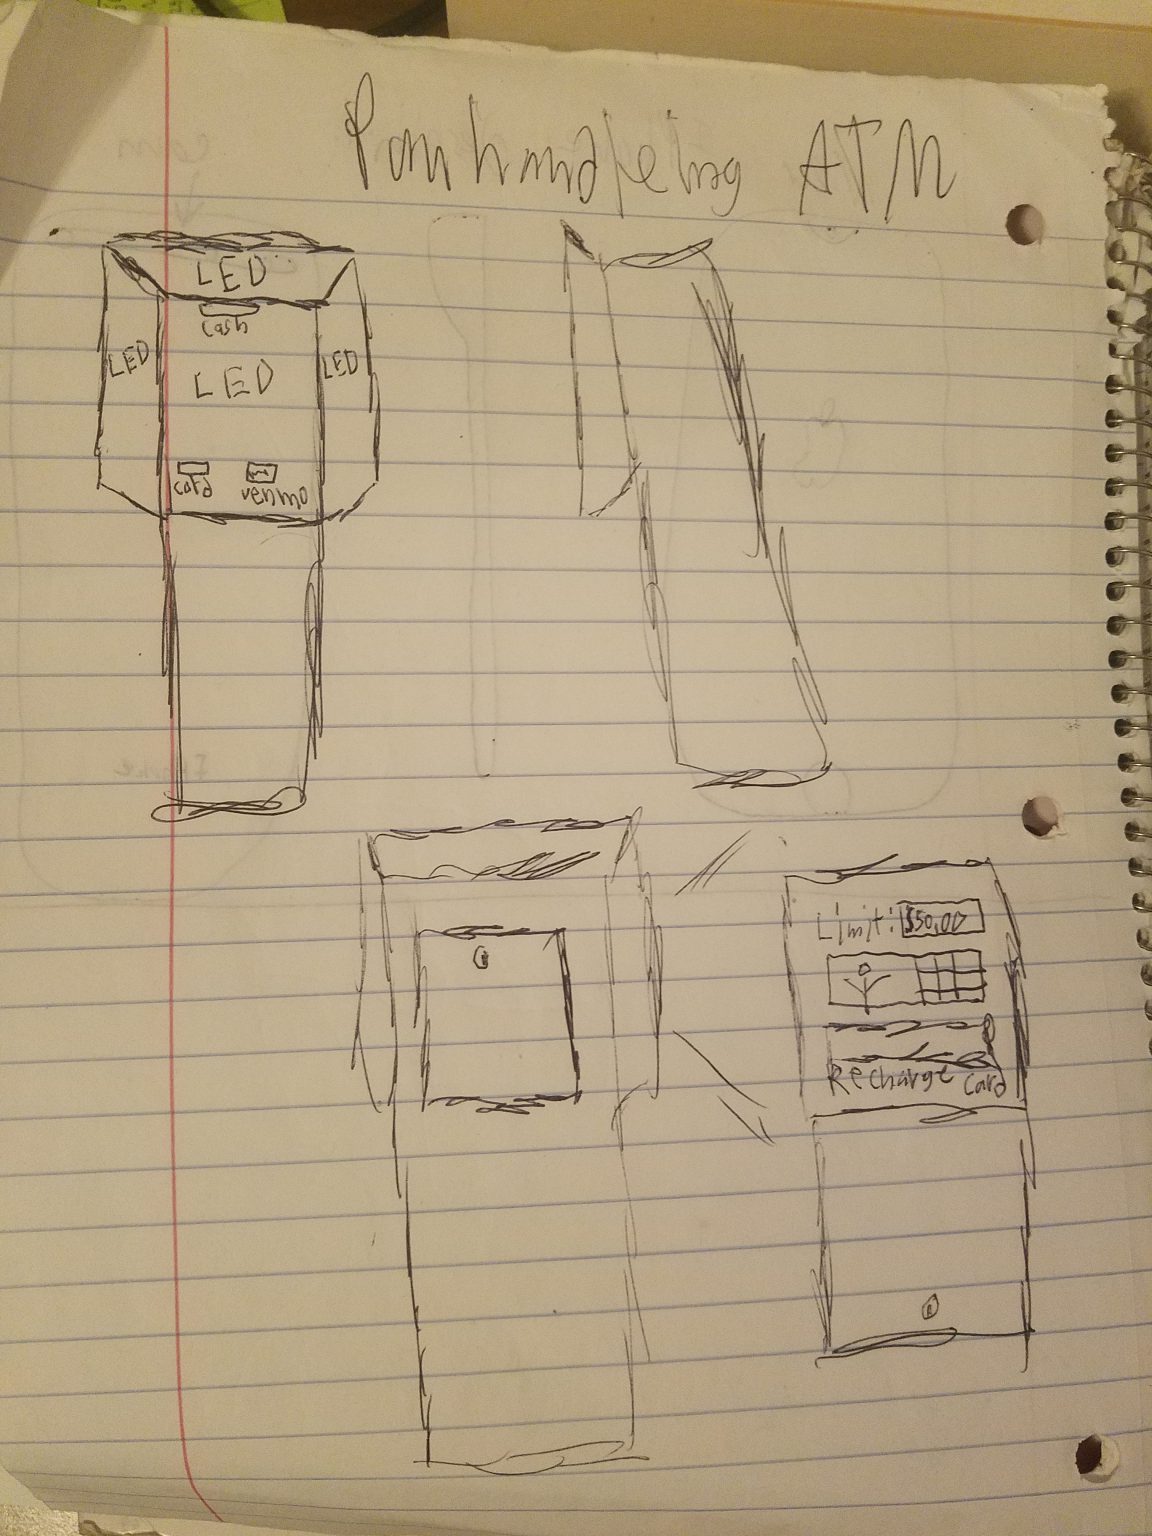 Panhandleing ATM
LED
cash
LED
LED
LED
card
venmo
Limit: $50.00
Recharge card